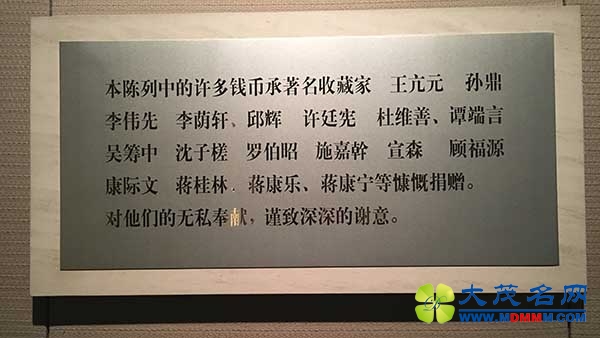 本陈列中的许多钱币承著名收藏家 王亢元 孙鼎
李伟先 李荫轩、邱辉 许廷宪 杜维善、谭端言
吴筹中 沈子槎 罗伯昭 施嘉幹 宣森 顾福源
康际文 蒋桂林、蒋康乐、蒋康宁等慷慨捐赠。
对他们的无私奉献，谨致深深的谢意。
大茂名网
www.MDMMM.com